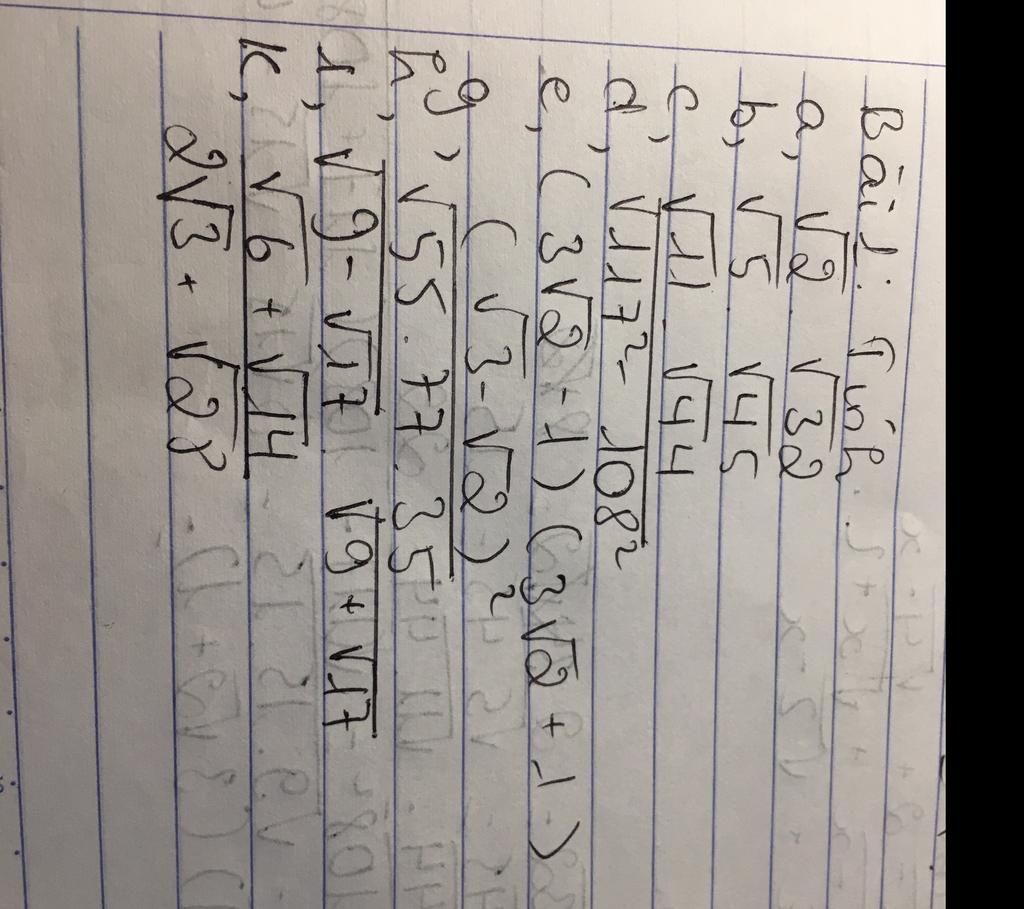 Bài 1: Tính
a, √2 . √32
b, √5 . √45
c, √11 . √44
d, √(117² - 108²)
e, (3√2 - 1) (3√2 + 1)
g, (√3 - √2)²
h, √(55 . 77 . 35)
i, √(9 - √17) . √(9 + √17)
k, (√6 + √14) / (2√3 + √28)